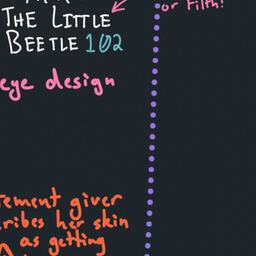 THE LITTLE
BEETLE 102
or Filth!
eye design
giver
her skin
as getting